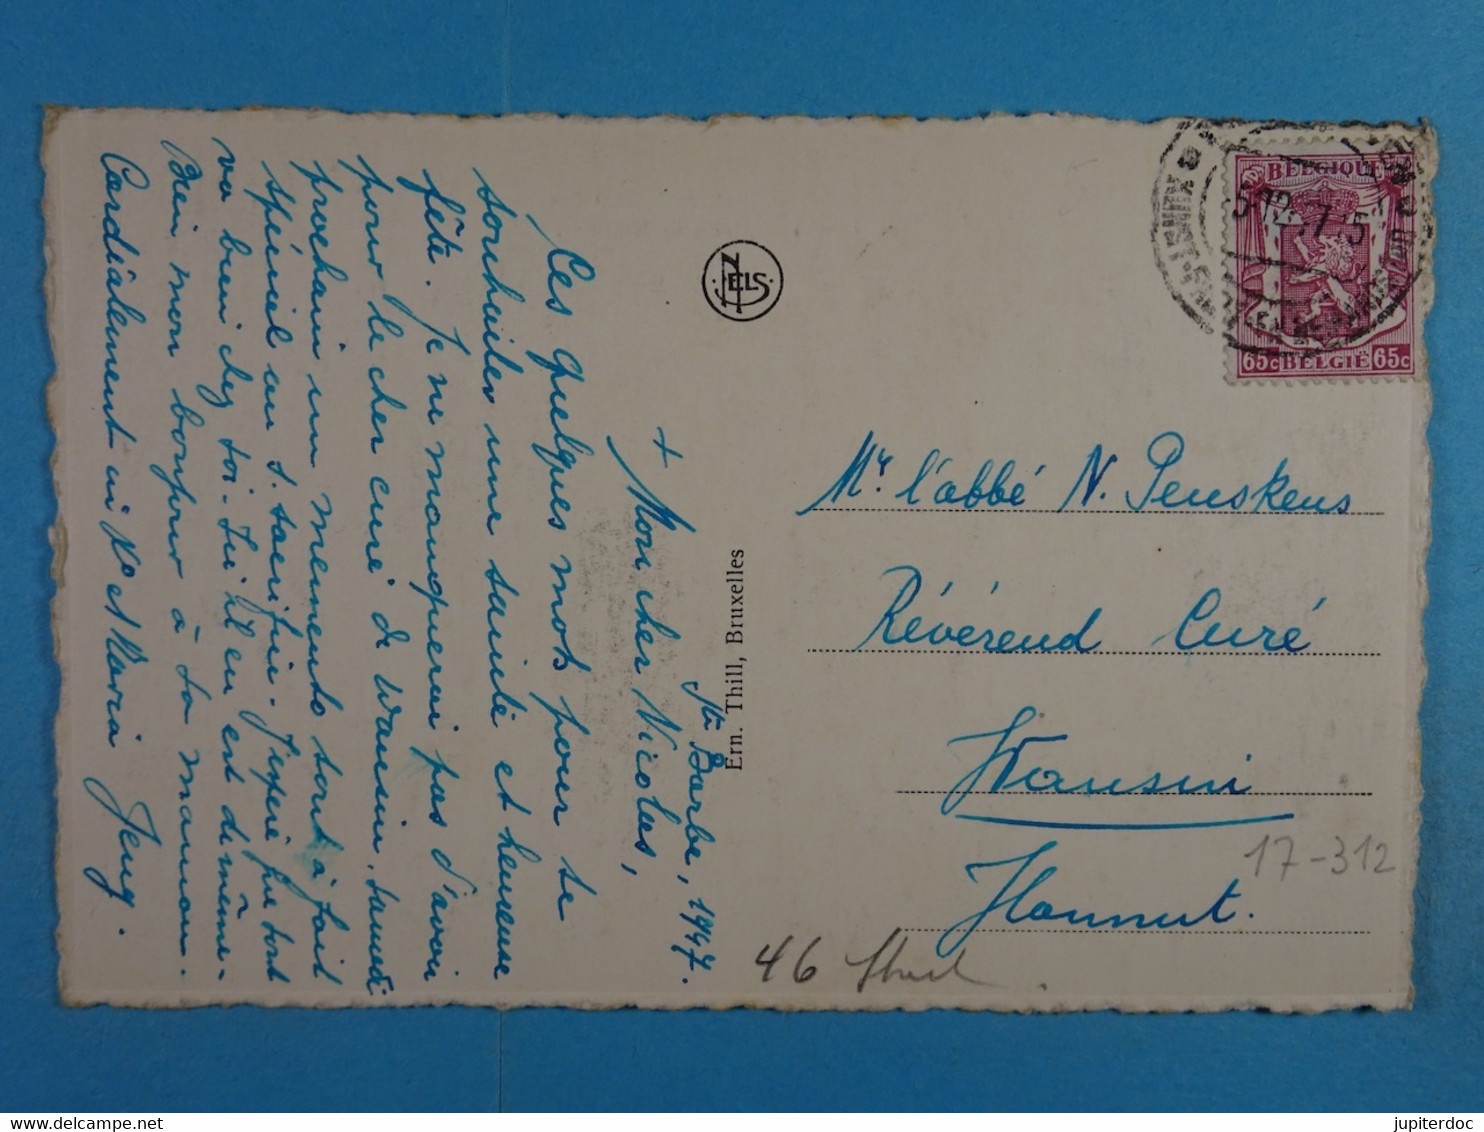 Ste Barbe, 1947.
+
Mon cher Nicolas,
Ces quelques mots pour te
souhaiter une sainte et heureuse
fête. Je ne manquerai pas d'avoir
pour le cher curé de Wansin, samedi
prochain un memento tout à fait
spécial au s. sacrifice. J'espère que tout
va bien chez toi. Ici il en est de même.
Bien mon bonjour à ta maman.
Cordialement in Xo et Maria
NELS
Ern. Thill, Bruxelles
BELGIQUE
65c BELGIE 65c
5 12
Mr. l'abbé N. Penskens
Révérend Curé
Wansin
Hannut.
17-312
46
jupiterdoc